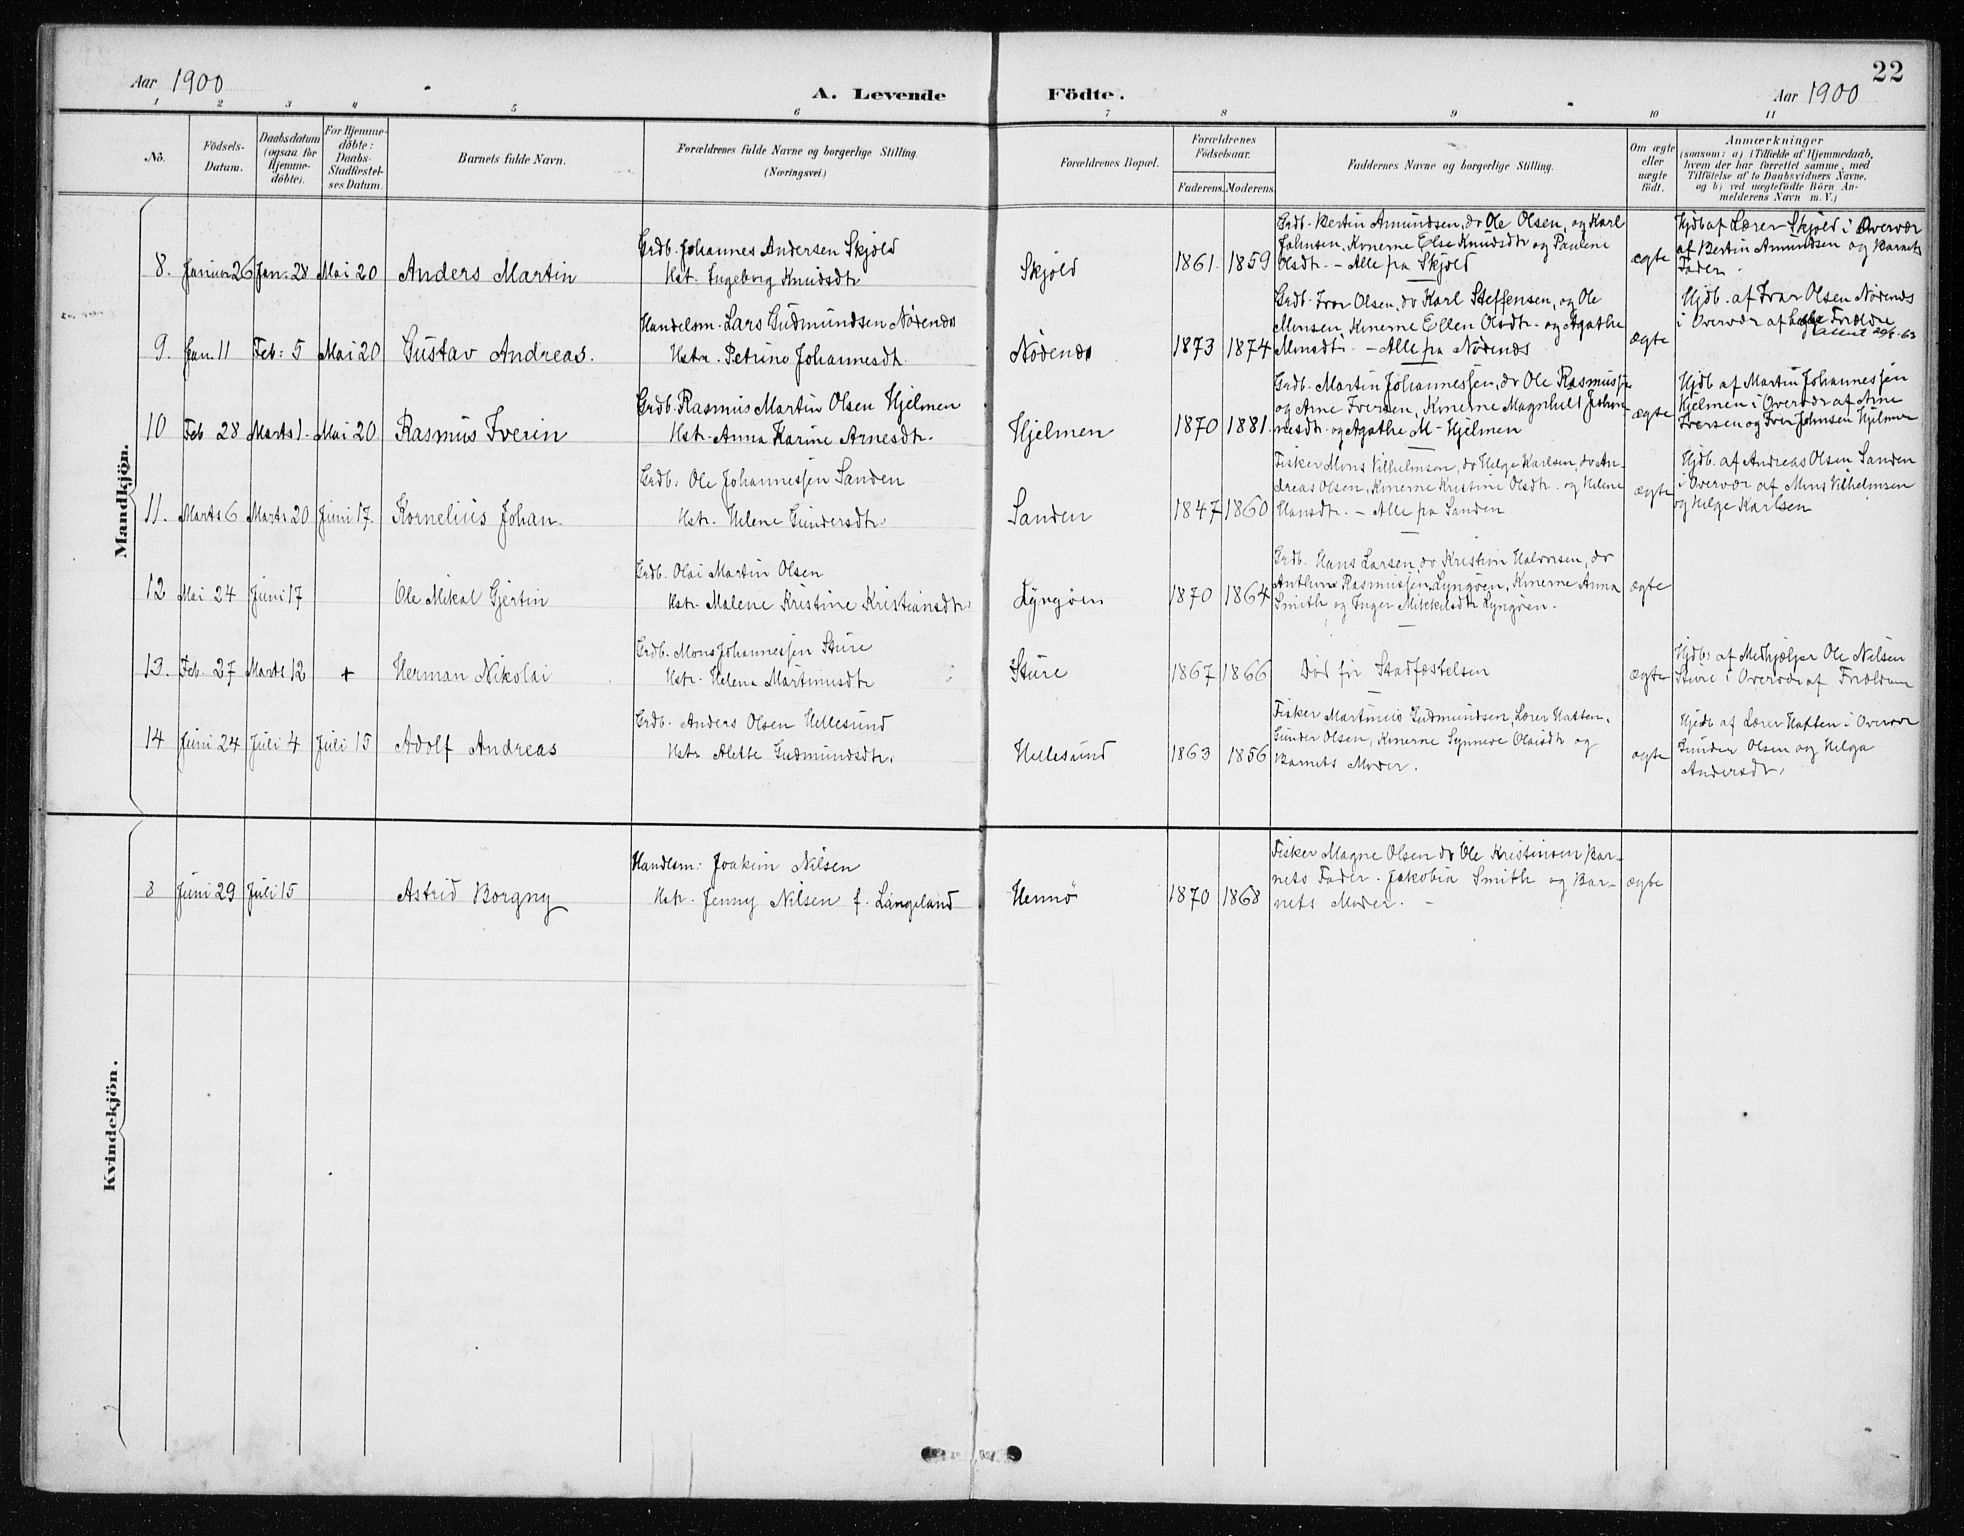 22
Aar 1900
A. Levende Födte.
Aar 1900
1 2 3 4 5 6 7 8 9 10 11
No.
Födsels-
Datum.
Daabsdatum
(ogsaa for
Hjemme-
döbte).
For Hjemme-
döbte:
Daabs-
Stadfæstel-
ses Datum.
Barnets fulde Navn.
Forældrenes fulde Navne og borgerlige Stilling.
(Næringsvei.)
Forældrenes Bopæl.
Forældrenes
Födselsaar.
Faderens. Moderens.
Faddernes Navne og borgerlige Stilling.
Om ægte
eller
uægte
födt.
Anmærkninger
(saasom: a) i Tilfælde af Hjemmedaab,
hvem der har forrettet samme, med
Tilföielse af to Daabsvidners Navne,
og b) ved uægtefödte Börn An-
melderens Navn m. V.)
Mandkjön.
8. Januar 26 Jan. 28 Mai 20 Anders Martin
Grdb. Johannes Andersen Skjold
Hstr. Ingeborg Knudsdtr
Skjold
1861. 1859
Grdb. Bertin Amundsen, do Ole Olsen, og Karl
Johnsen, Konerne Else Knudsdtr og Pauline
Olsdtr. - Alle på Skjold
ægte
Hjdb af Lærer Skjold i Overvær
af Bertin Amundsen og Barnets
Fader.
9. Jan. 11 Feb: 5 Mai 20 Gustav Andreas.
Handelsm. Lars Gudmundsen Nödenes
Hstr. Petrine Johannesdt.
Nödenes
1873 1874
Grdb. Ivar Olsen, do Karl Steffensen, og Ole
Monsen, Konerne Ellen Olsdtr. og Agathe
Monsdtr. - Alle på Nödenes
ægte
Hjdb. af Ivar Olsen Nödenes
i Overvær af begge Forældre
10 Feb 28 Marts 1. Mai 20 Rasmus Iverin
Grdb. Rasmus Martin Olsen Hjelmen
Hstr. Anna Karine Arnesdtr.
Hjelmen
1870 1881.
Grdb. Martin Johannessen, do Ole Rasmussen
og Arne Iversen, Konerne Magnhild Johan-
nesdtr. og Agathe M- Hjelmen
ægte
Hjdb af Martin Johannessen
Hjelmen i Overvær af Arne
Iversen og Iver Johnsen Hjelmen
11. Marts 6 Marts 20 Juni 17. Kornelius Johan.
Grdb. Ole Johannessen Sanden
Hstr. Helene Gundersdtr.
Sanden
1847 1860
Fisker Mons Vilhelmsen, do Helge Karlsen, do An-
dreas Olsen, Konerne Kristine Olsdtr. og Helene
Hansdtr. - Alle på Sanden
ægte
Hjdb. af Andreas Olsen Sanden
i Overvær af Mons Vilhelmsen
og Helge Karlsen
12 Mai 24 Juni 17 Ole Mikal Gjertin
Grdb. Olai Martin Olsen
Hstr. Malene Kristine Kristiansdtr.
Lyngöen
1870 1864
Grdb. Hans Larsen, do Kristian Halvorsen, do
Anthun Rasmussen Lyngöen, Konerne Anna
Smith og Inger Mikkelsdtr Lyngöen.
ægte
13. Feb. 27 Marts 12 + Herman Nikolai
Grdb. Mons Johannessen Sture
Hstr. Helena Martinusdtr
Sture
1867 1866
Död för Stadfæstelsen
ægte
Hjdb. af Medhjælper Ole Nilsen
Sture i Overvær af Forældrene
14 Juni 24 Juli 4 Juli 15 Adolf Andreas
Grdb. Anders Olsen Hellesund
Hstr. Alette Gudmundsdtr.
Hellesund
1863 1856
Fisker Martinus Gudmundsen, Lærer Hatten,
Gunder Olsen, Konerne Synneve Olaisdtr og
Barnets Moder.
ægte
Hjdb af Lærer Hatten i Overvær
Gunder Olsen og Helga
Andersdtr.
Kvindekjön.
8 Juni 29 Juli 15 Astrid Borgny
Handelsm. Joakim Nilsen
Hstr. Jenny Nilsen f. Langeland
Hennö
1870 1868
Fisker Magne Olsen do Ole Kristensen Bar-
nets Fader. Jakobia Smith og Bar-
nets Moder. -
ægte